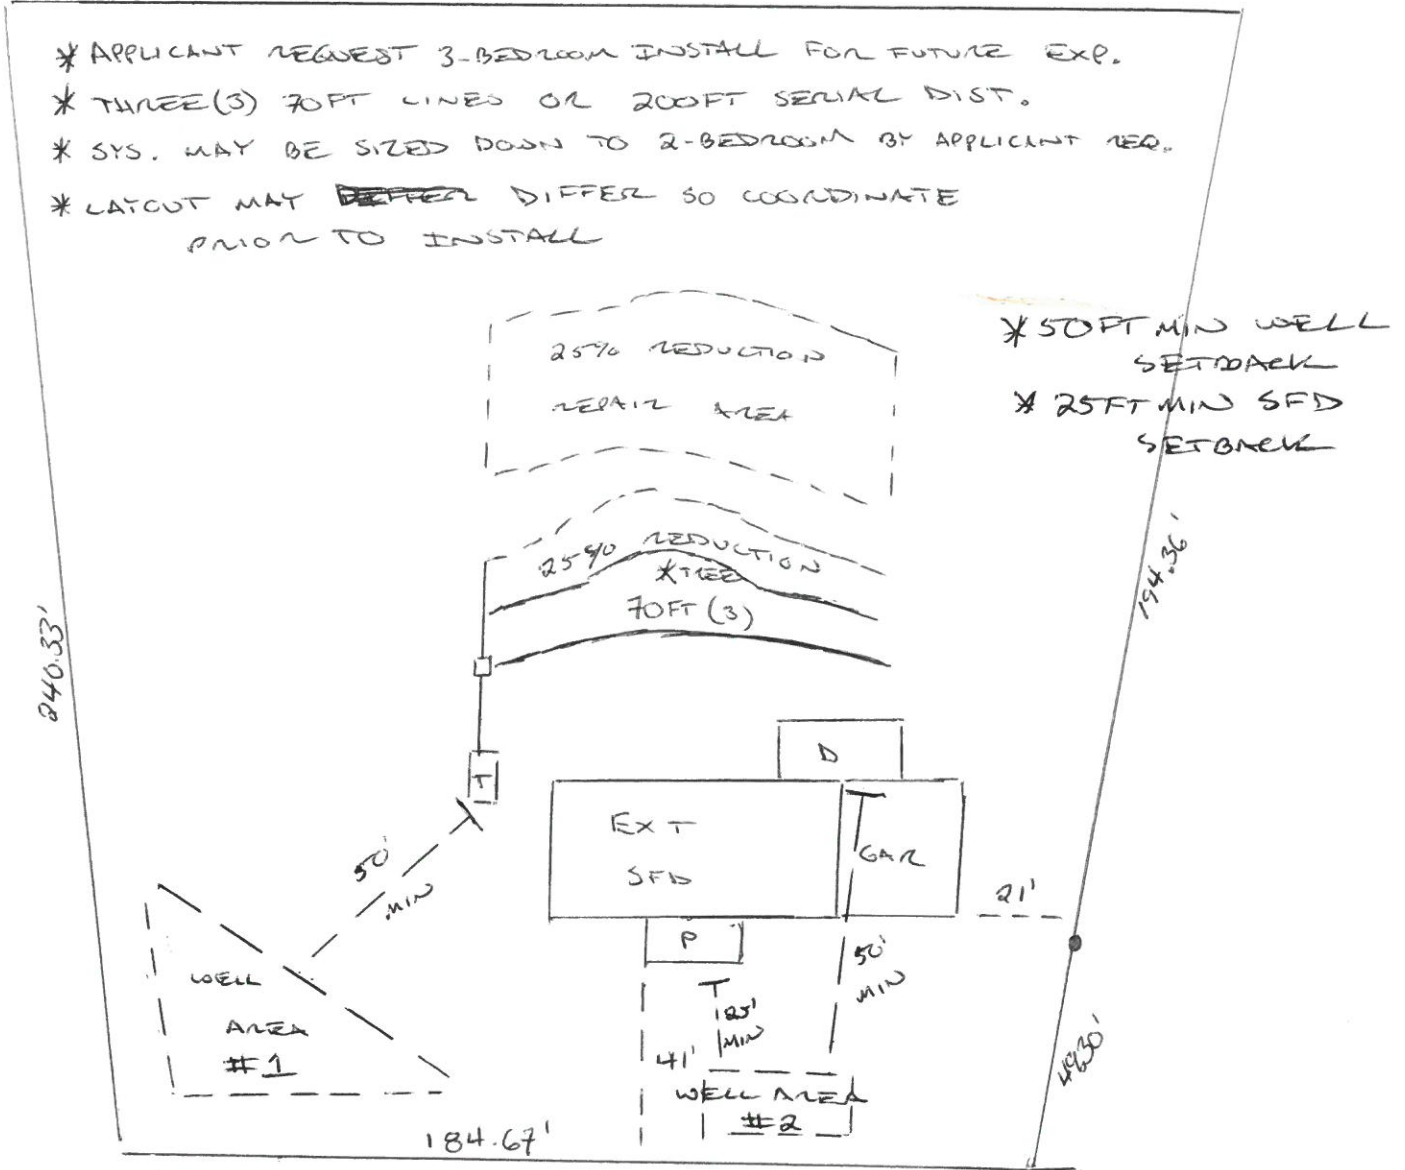 * APPLICANT REQUEST 3-BEDROOM INSTALL FOR FUTURE EXP.
* THREE(3) 70FT LINES OR 200FT SERIAL DIST.
* SYS. MAY BE SIZED DOWN TO 2-BEDROOM BY APPLICANT REQ.
* LAYOUT MAY DIFFER SO COORDINATE
PRIOR TO INSTALL
* 50FT MIN WELL
SETBACK
* 25FT MIN SFD
SETBACK
25% REDUCTION
REPAIR AREA
25% REDUCTION
70FT (3)
194.36'
240.33'
T
D
EXT
SFD
GAR
P
21'
50'
MIN
50'
MIN
25'
MIN
41'
WELL
AREA
#1
WELL AREA
#2
184.67'